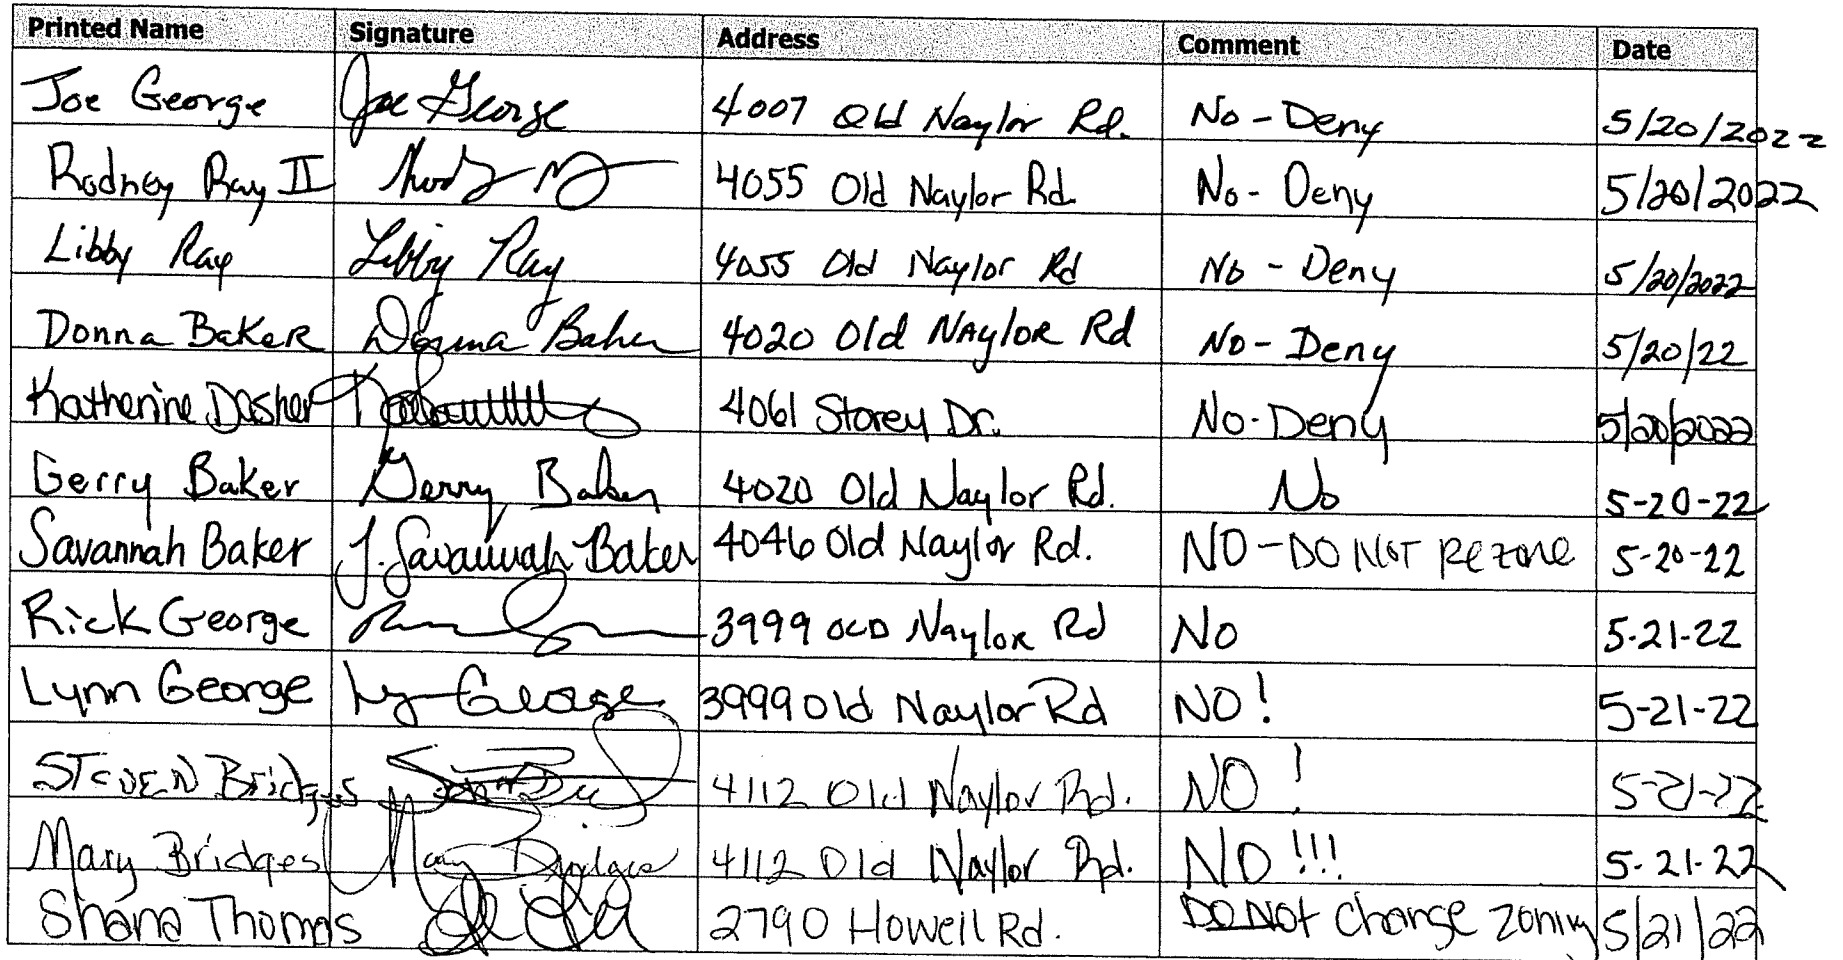 Printed Name Signature Address Comment Date
Joe George Joe George 4007 Old Naylor Rd. No - Deny 5/20/2022
Rodney Ray II 4055 Old Naylor Rd. No - Deny 5/20/2022
Libby Ray Libby Ray 4055 Old Naylor Rd No - Deny 5/20/2022
Donna Baker Donna Baker 4020 Old Naylor Rd No - Deny 5/20/22
Katherine Dasher 4061 Storey Dr. No - Deny 5/20/2022
Gerry Baker Gerry Baker 4020 Old Naylor Rd. No 5-20-22
Savannah Baker J. Savannah Baker 4046 Old Naylor Rd. NO - DO NOT Rezone 5-20-22
Rick George 3999 OLD Naylor Rd No 5-21-22
Lynn George Ly George 3999 Old Naylor Rd NO! 5-21-22
STEVEN Bridges 4112 Old Naylor Rd. NO! 5-21-22
Mary Bridges Mary Bridges 4112 Old Naylor Rd. NO!!! 5-21-22
Shana Thomas 2790 Howell Rd. DO NOT Change Zoning 5/21/22